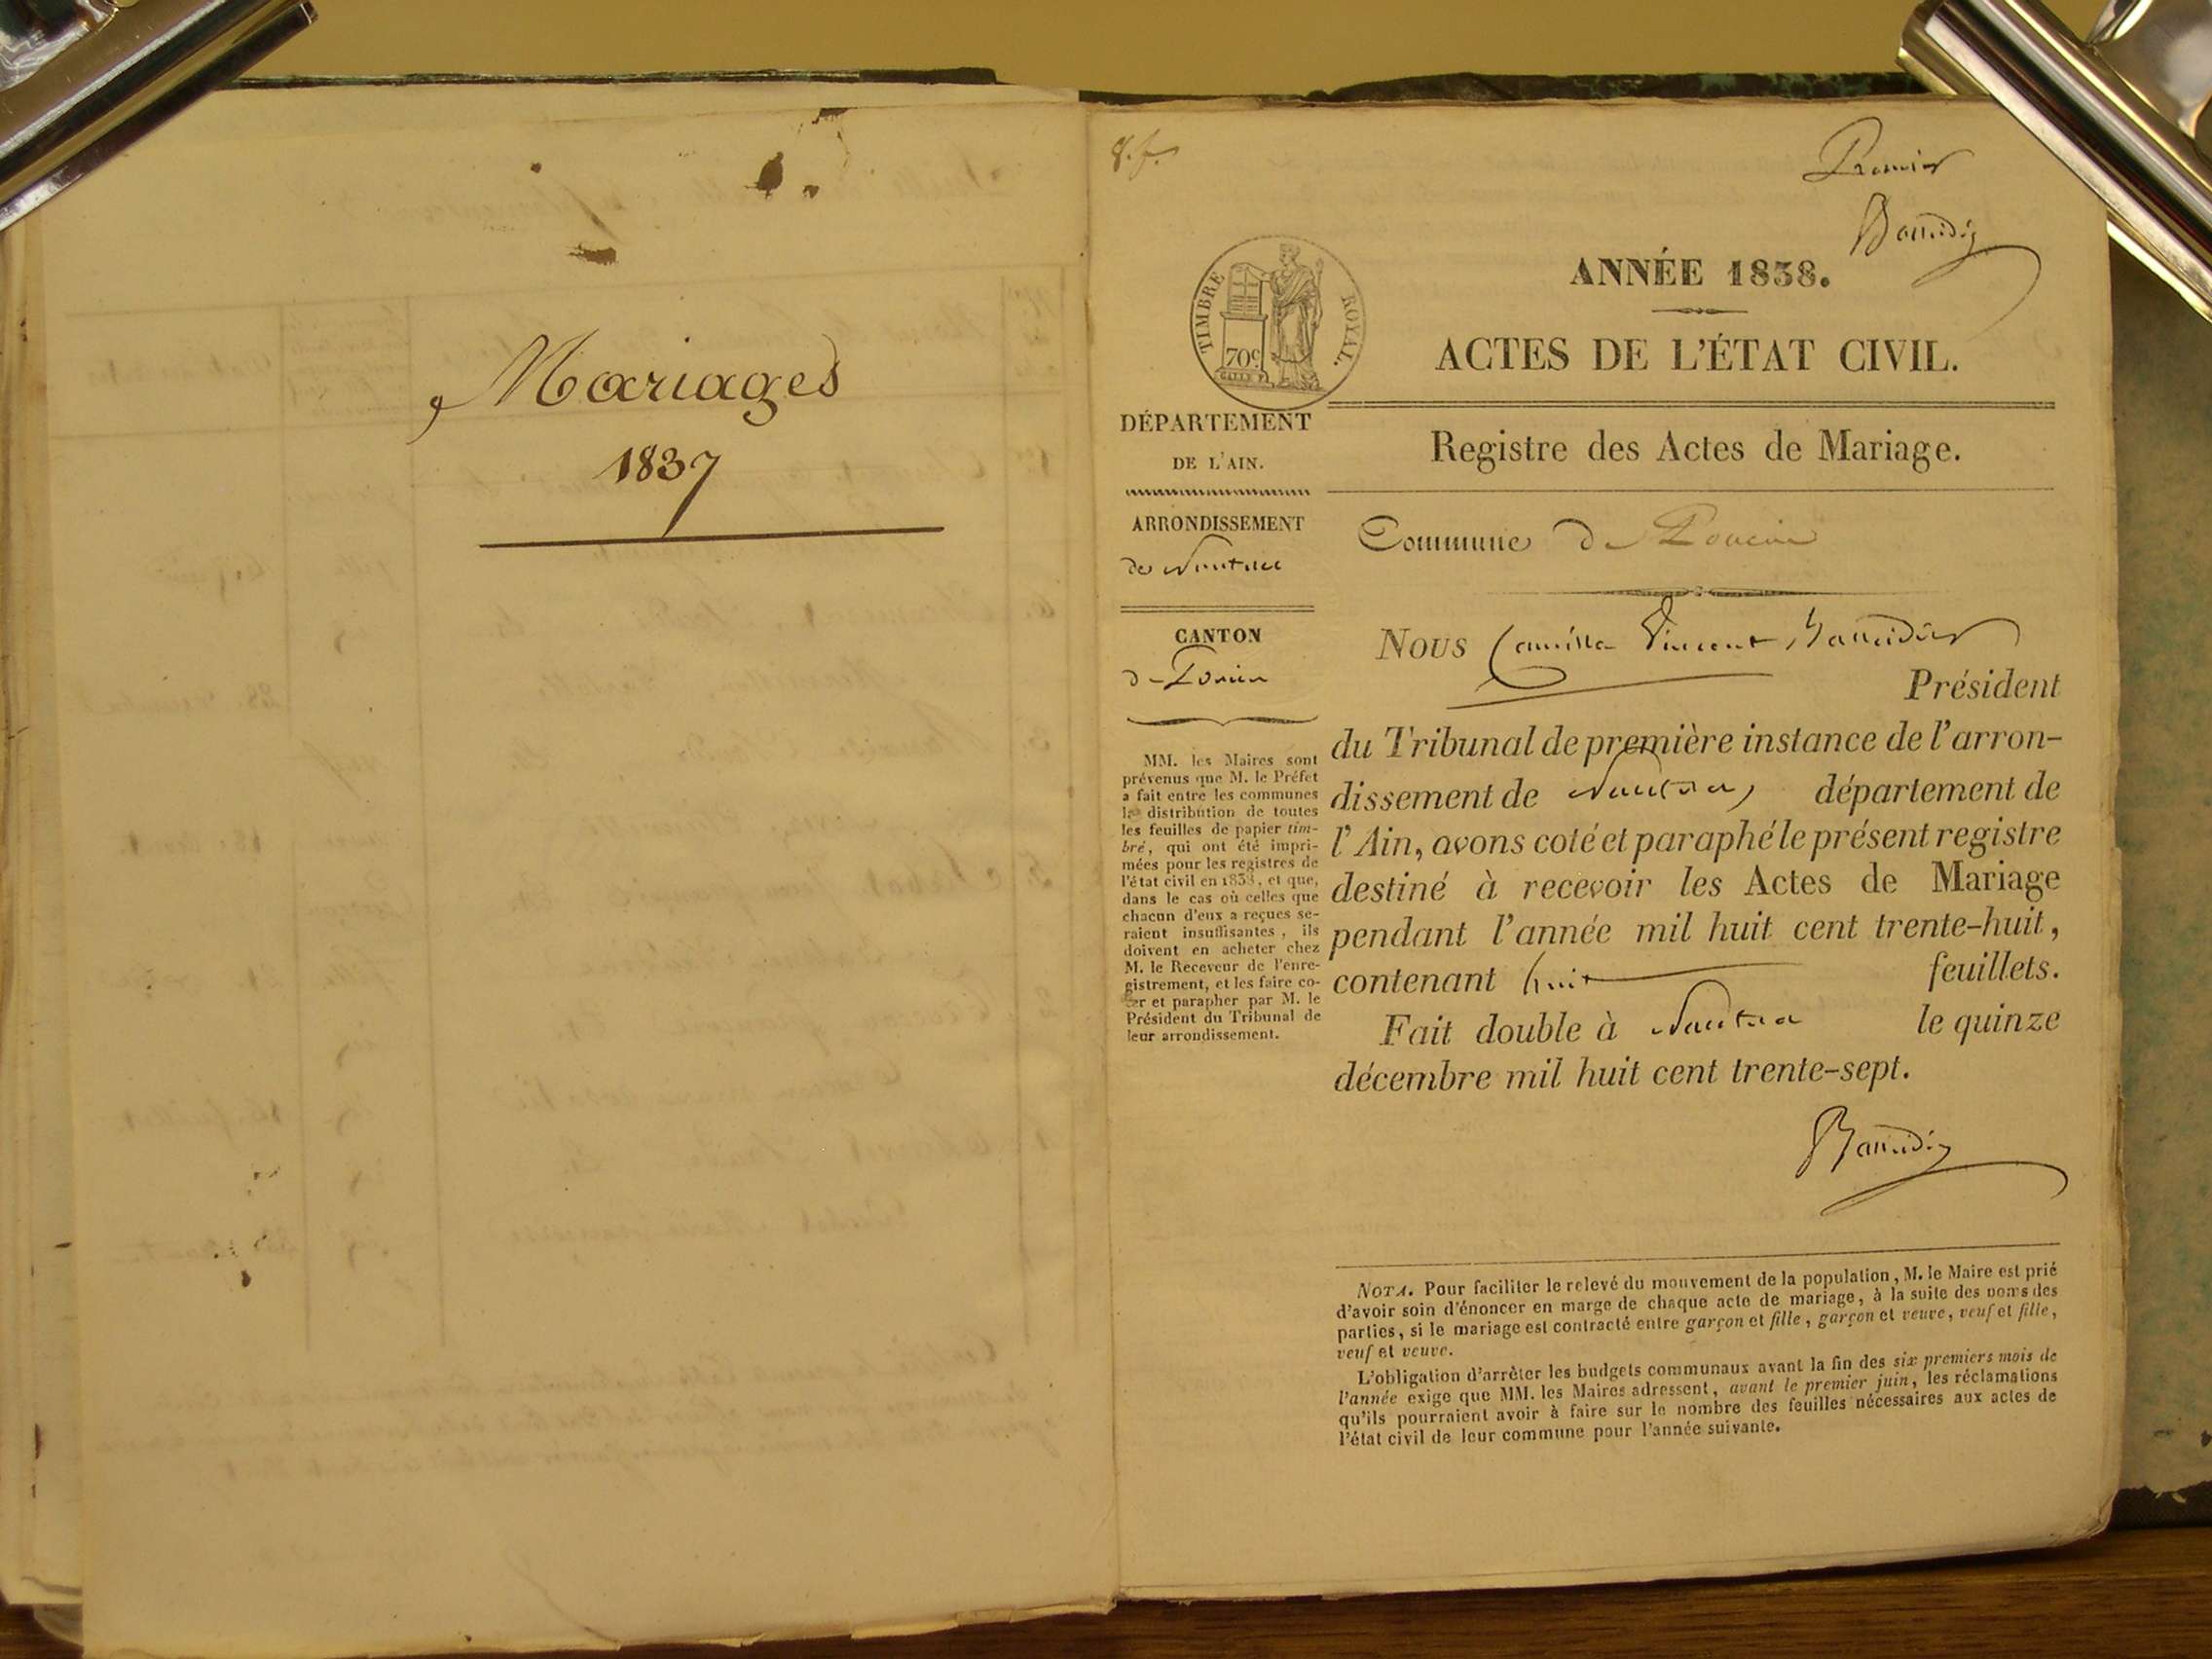 Mariages
1837
8. f.
Premier
TIMBRE ROYAL.
70c
ANNÉE 1838.
ACTES DE L'ÉTAT CIVIL.
Registre des Actes de Mariage.
DÉPARTEMENT
DE L'AIN.
ARRONDISSEMENT
de Nantua
CANTON
de Poncin
MM. les Maires sont
prévenus que M. le Préfet
a fait entre les communes
la distribution de toutes
les feuilles de papier tim-
bré, qui ont été impri-
mées pour les registres de
l'état civil en 1838, et que,
dans le cas où celles que
chacun d'eux a reçues se-
raient insuffisantes, ils
doivent en acheter chez
M. le Receveur de l'enre-
gistrement, et les faire co-
ter et parapher par M. le
Président du Tribunal de
leur arrondissement.
Commune de Poncin
Nous Camille Vincent
Président
du Tribunal de première instance de l'arron-
dissement de Nantua, département de
l'Ain, avons coté et paraphé le présent registre
destiné à recevoir les Actes de Mariage
pendant l'année mil huit cent trente-huit,
contenant huit feuillets.
Fait double à Nantua le quinze
décembre mil huit cent trente-sept.
NOTA. Pour faciliter le relevé du mouvement de la population, M. le Maire est prié
d'avoir soin d'énoncer en marge de chaque acte de mariage, à la suite des noms des
parties, si le mariage est contracté entre garçon et fille, garçon et veuve, veuf et fille,
veuf et veuve.
L'obligation d'arrêter les budgets communaux avant la fin des six premiers mois de
l'année exige que MM. les Maires adressent, avant le premier juin, les réclamations
qu'ils pourraient avoir à faire sur le nombre des feuilles nécessaires aux actes de
l'état civil de leur commune pour l'année suivante.